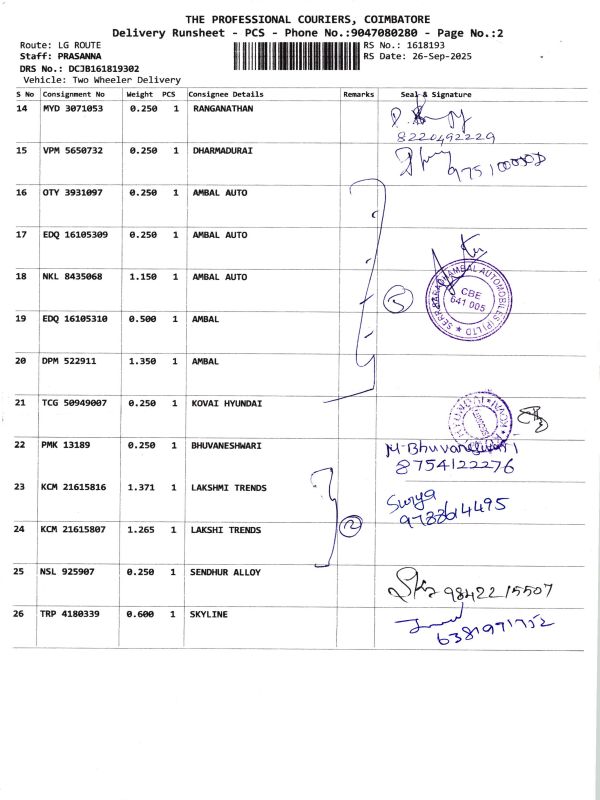 THE PROFESSIONAL COURIERS, COIMBATORE
Delivery Runsheet - PCS - Phone No.:9047080280 - Page No.:2
Route: LG ROUTE RS No.: 1618193
Staff: PRASANNA RS Date: 26-Sep-2025
DRS No.: DCJB161819302
Vehicle: Two Wheeler Delivery
S No Consignment No Weight PCS Consignee Details Remarks Seal & Signature
14 MYD 3071053 0.250 1 RANGANATHAN
8220492229
15 VPM 5650732 0.250 1 DHARMADURAI
16 OTY 3931097 0.250 1 AMBAL AUTO
17 EDQ 16105309 0.250 1 AMBAL AUTO
18 NKL 8435068 1.150 1 AMBAL AUTO
5
AMBAL AUTOMOBILES (P) LTD
CBE
641 005
19 EDQ 16105310 0.500 1 AMBAL
20 DPM 522911 1.350 1 AMBAL
21 TCG 50949007 0.250 1 KOVAI HYUNDAI
22 PMK 13189 0.250 1 BHUVANESHWARI
M. Bhuvaneshwari
8754122276
23 KCM 21615816 1.371 1 LAKSHMI TRENDS
Surya
24 KCM 21615807 1.265 1 LAKSHI TRENDS
2
25 NSL 925907 0.250 1 SENDHUR ALLOY
9842215507
26 TRP 4180339 0.600 1 SKYLINE
6381971752